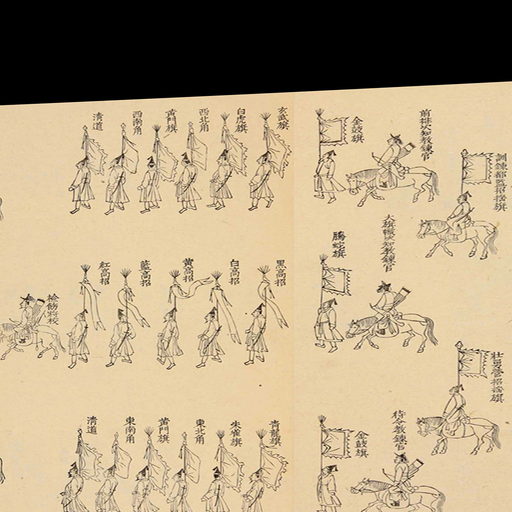 訓鍊都監招搖旗
壯勇營招搖旗
前排次知教鍊官
大旗幟次知教鍊官
待令教鍊官
金鼓旗
螣蛇旗
金鼓旗
玄武旗
白虎旗
西北角
黃門旗
西南角
清道
黑高招
白高招
黃高招
藍高招
紅高招
青龍旗
朱雀旗
東北角
黃門旗
東南角
清道